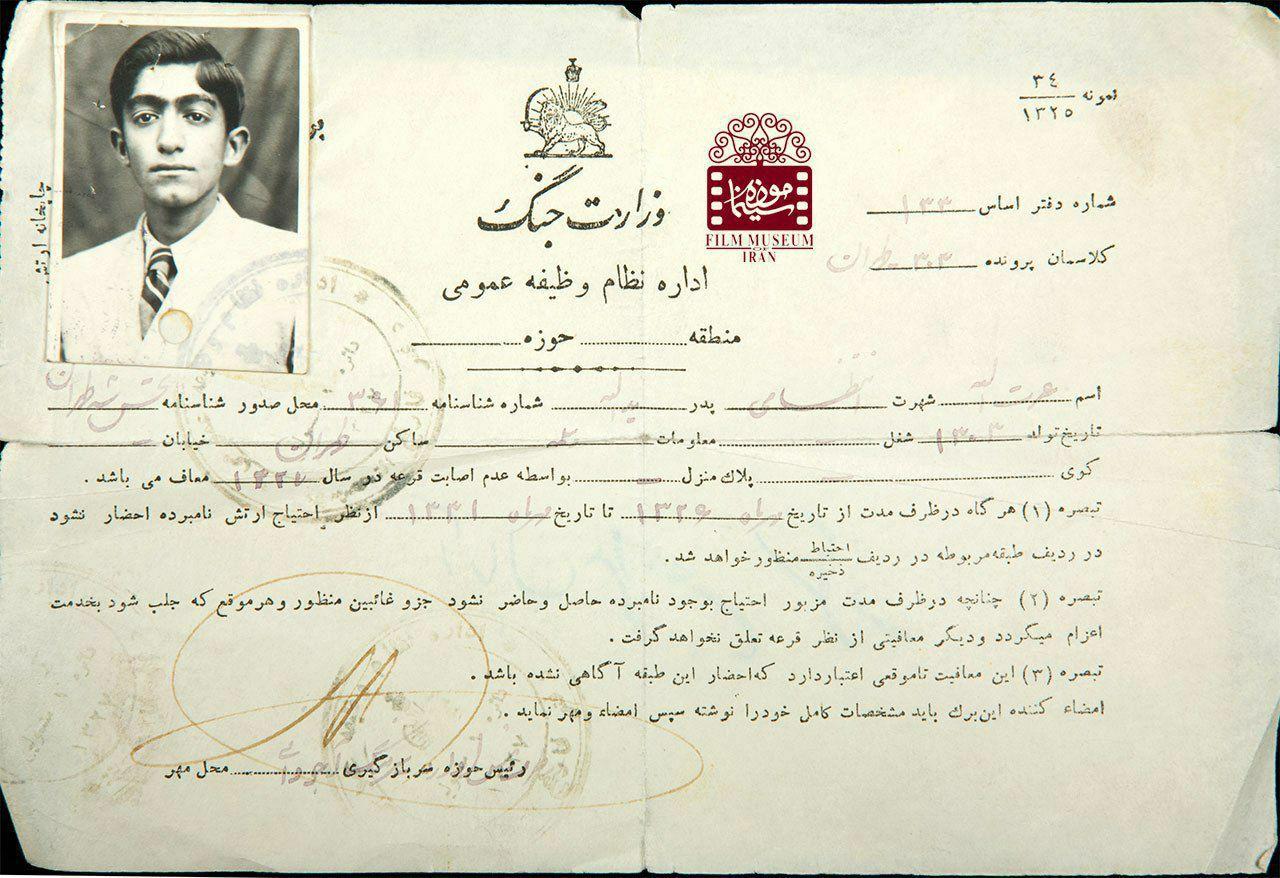 نمونه ٣٤
١٣٢٥
وزارت جنگ
موزه سینما
FILM MUSEUM
OF
IRAN
شماره دفتر اساس ۱۳۳
کلاسمان پرونده ۳۰۳ طهران
اداره نظام وظیفه عمومی
منطقه حوزه
چاپخانه ارتش
اسم عزت اله شهرت انتظامی پدر یداله شماره شناسنامه محل صدور شناسنامه طهران
تاریخ تولد ۱۳۰۳ شغل - معلومات ساکن طهران خیابان -
کوی - پلاک منزل - بواسطه عدم اصابت قرعه در سال ۱۳۲۷ معاف می باشد .
تبصره (۱) هر گاه در ظرف مدت از تاریخ مهرماه ۱۳۲۶ تا تاریخ مهرماه ۱۳۳۱ از نظر احتیاج ارتش نامبرده احضار نشود
در ردیف طبقه مربوطه در ردیف احتیاط ذخیره منظور خواهد شد.
تبصره (۲) چنانچه در ظرف مدت مزبور احتیاج بوجود نامبرده حاصل و حاضر نشود جزو غائبین منظور و هر موقع که جلب شود بخدمت
اعزام میگردد و دیگر معافیتی از نظر قرعه تعلق نخواهد گرفت .
تبصره (۳) این معافیت تا موقعی اعتبار دارد که احضار این طبقه آگاهی نشده باشد .
امضاء کننده این برك باید مشخصات کامل خود را نوشته سپس امضاء و مهر نماید .
رئیس حوزه سرباز گیری محل مهر